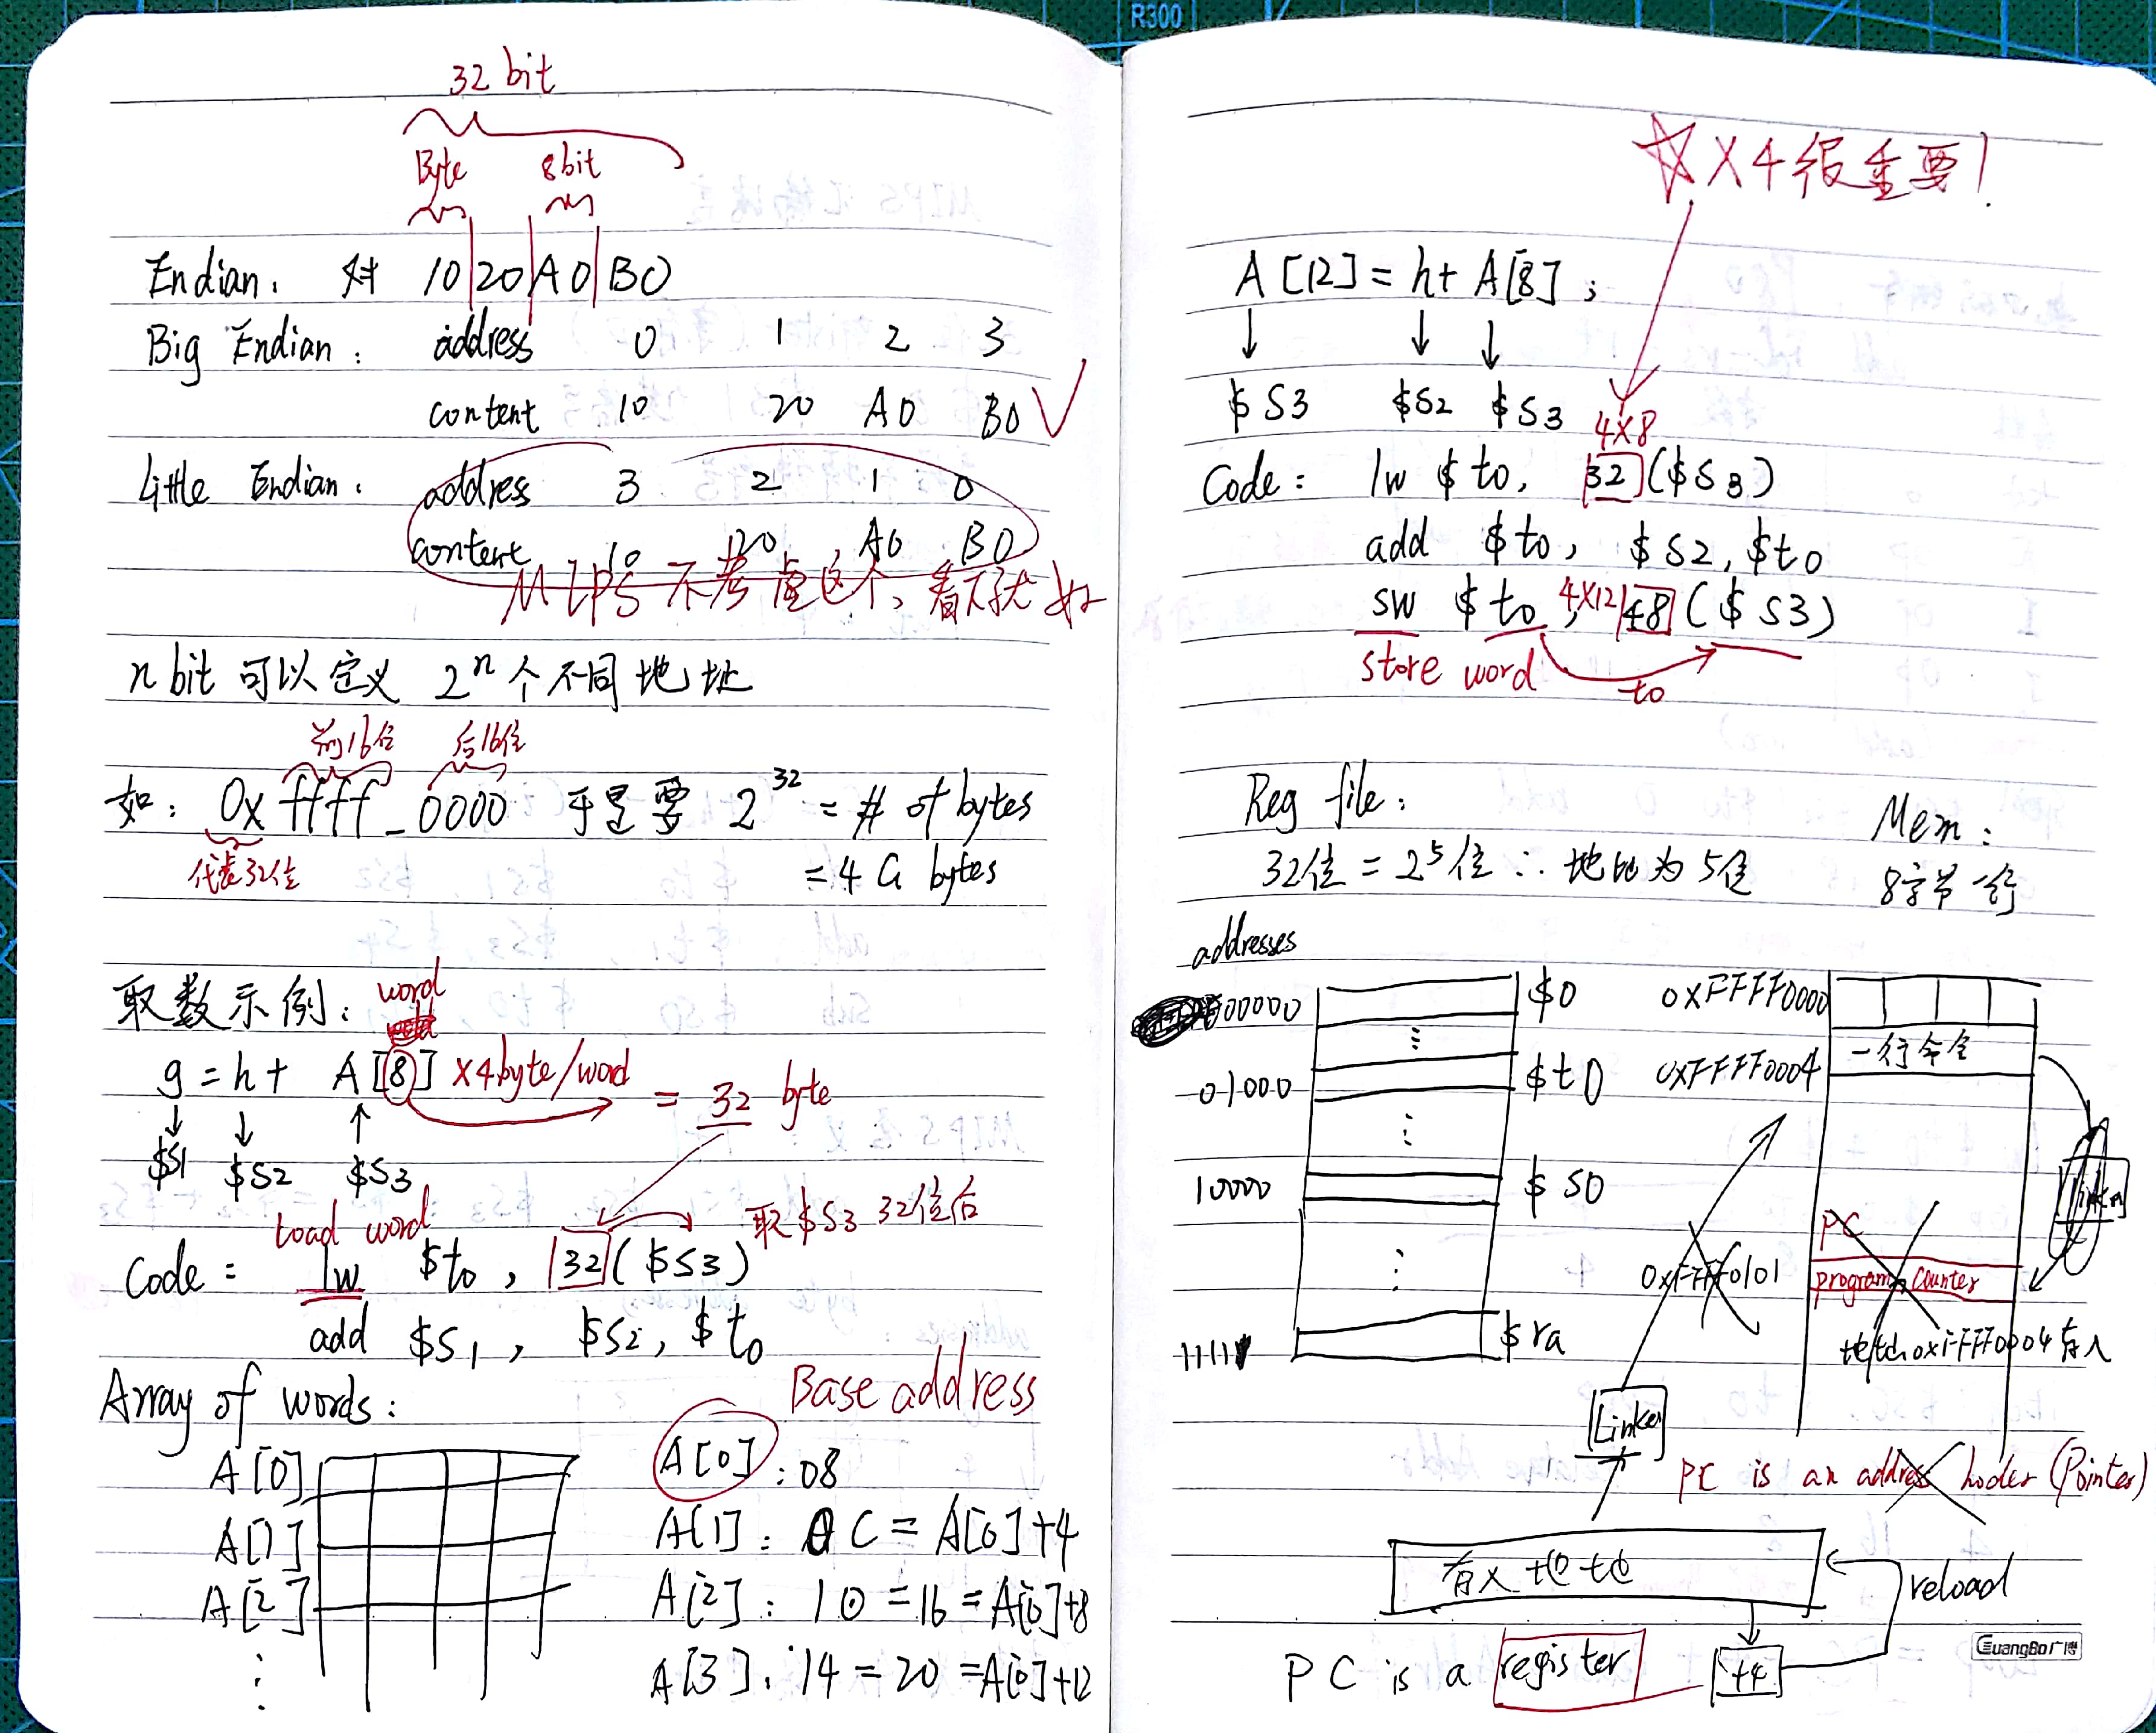 R300
32 bit
Byte 8bit
Endian. 对 10|20|A0|B0
Big Endian: address 0 1 2 3
content 10 20 A0 B0
Little Endian. address 3 2 1 0
content 10 20 A0 B0
MIPS 不考虑这个,
n bit 可以定义 2^n 个不同地址
前16位 后16位
如: 0x ffff_0000 于是要 2^32 = # of bytes
代表32位 = 4 G bytes
取数示例: word
g = h + A[8] ×4byte/word = 32 byte
$S1 $S2 $S3
Load word 取 $S3 32位后
Code: lw $t0, 32($S3)
add $S1, $S2, $t0
Array of words: Base address
A[0] A[0]: 08
A[1] A[1]: 0C = A[0]+4
A[2] A[2]: 10 = 16 = A[0]+8
⋮ A[3]: 14 = 20 = A[0]+12
☆×4很重要!
A[12] = h + A[8];
$S3 $S2 $S3
4×8
Code: lw $t0, 32($S3)
add $t0, $S2, $t0
sw $t0, 4×12 48($S3)
store word to
Reg file: Mem:
32位 = 2^5位 ∴ 地址为5位 8字节一行
addresses
00000 $0 0xFFFF0000
⋮
01000 $t0 0xFFFF0004 一行命令
⋮
10000 $S0 Linker
PC
⋮ 0xFFFF0101 program Counter
11111 $ra 地址0xFFFF0004存入
Linker
PC is an address hoder (Pointer)
存入地址 reload
PC is a register +4
GuangBo广博